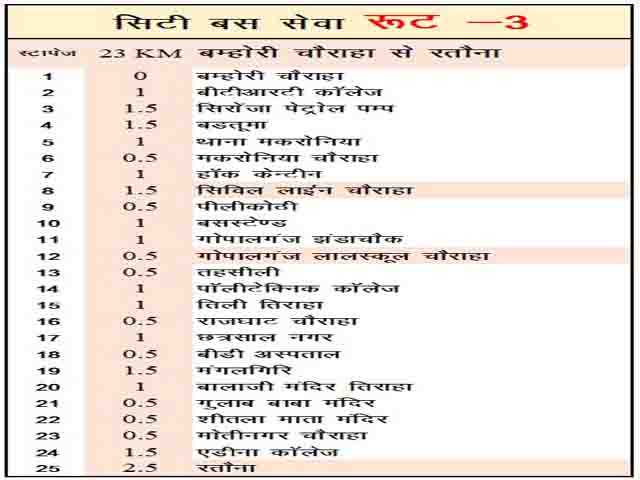 सिटी बस सेवा रूट –3
स्टापेज 23 KM बम्होरी चौराहा से रतौना
1 0 बम्होरी चौराहा
2 1 बीटीआरटी कॉलेज
3 1.5 सिरोंजा पेट्रोल पम्प
4 1.5 बडतूमा
5 1 थाना मकरोनिया
6 0.5 मकरोनिया चौराहा
7 1 हॉक केन्टीन
8 1.5 सिविल लाईन चौराहा
9 0.5 पीलीकोठी
10 1 बसस्टेण्ड
11 1 गोपालगंज झंडाचौक
12 0.5 गोपालगंज लालस्कूल चौराहा
13 0.5 तहसीली
14 1 पॉलीटेक्निक कॉलेज
15 1 तिली तिराहा
16 0.5 राजघाट चौराहा
17 1 छत्रसाल नगर
18 0.5 बीडी अस्पताल
19 1.5 मंगलगिरि
20 1 बालाजी मंदिर तिराहा
21 0.5 गुलाब बाबा मंदिर
22 0.5 शीतला माता मंदिर
23 0.5 मोतीनगर चौराहा
24 1.5 एडीना कॉलेज
25 2.5 रतौना